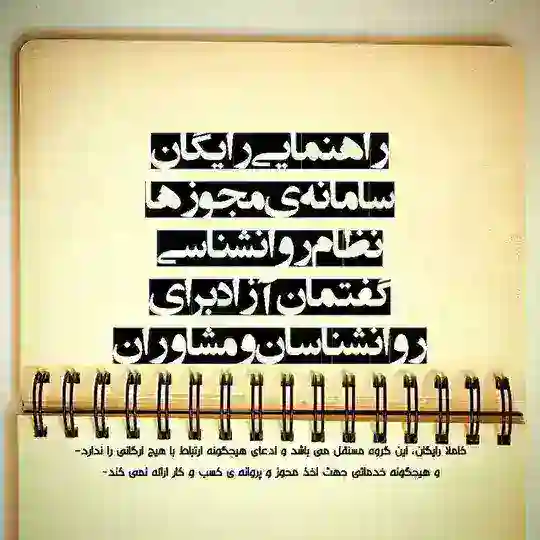 راهنمایی رایگان
سامانه‌ی مجوزها
نظام روانشناسی
گفتمان آزاد برای
روانشناسان و مشاوران
کاملا رایگان، این گروه مستقل می باشد و ادعای هیچگونه ارتباط با هیچ ارگانی را ندارد-
و هیچگونه خدماتی جهت اخذ مجوز و پروانه ی کسب و کار ارائه نمی کند-